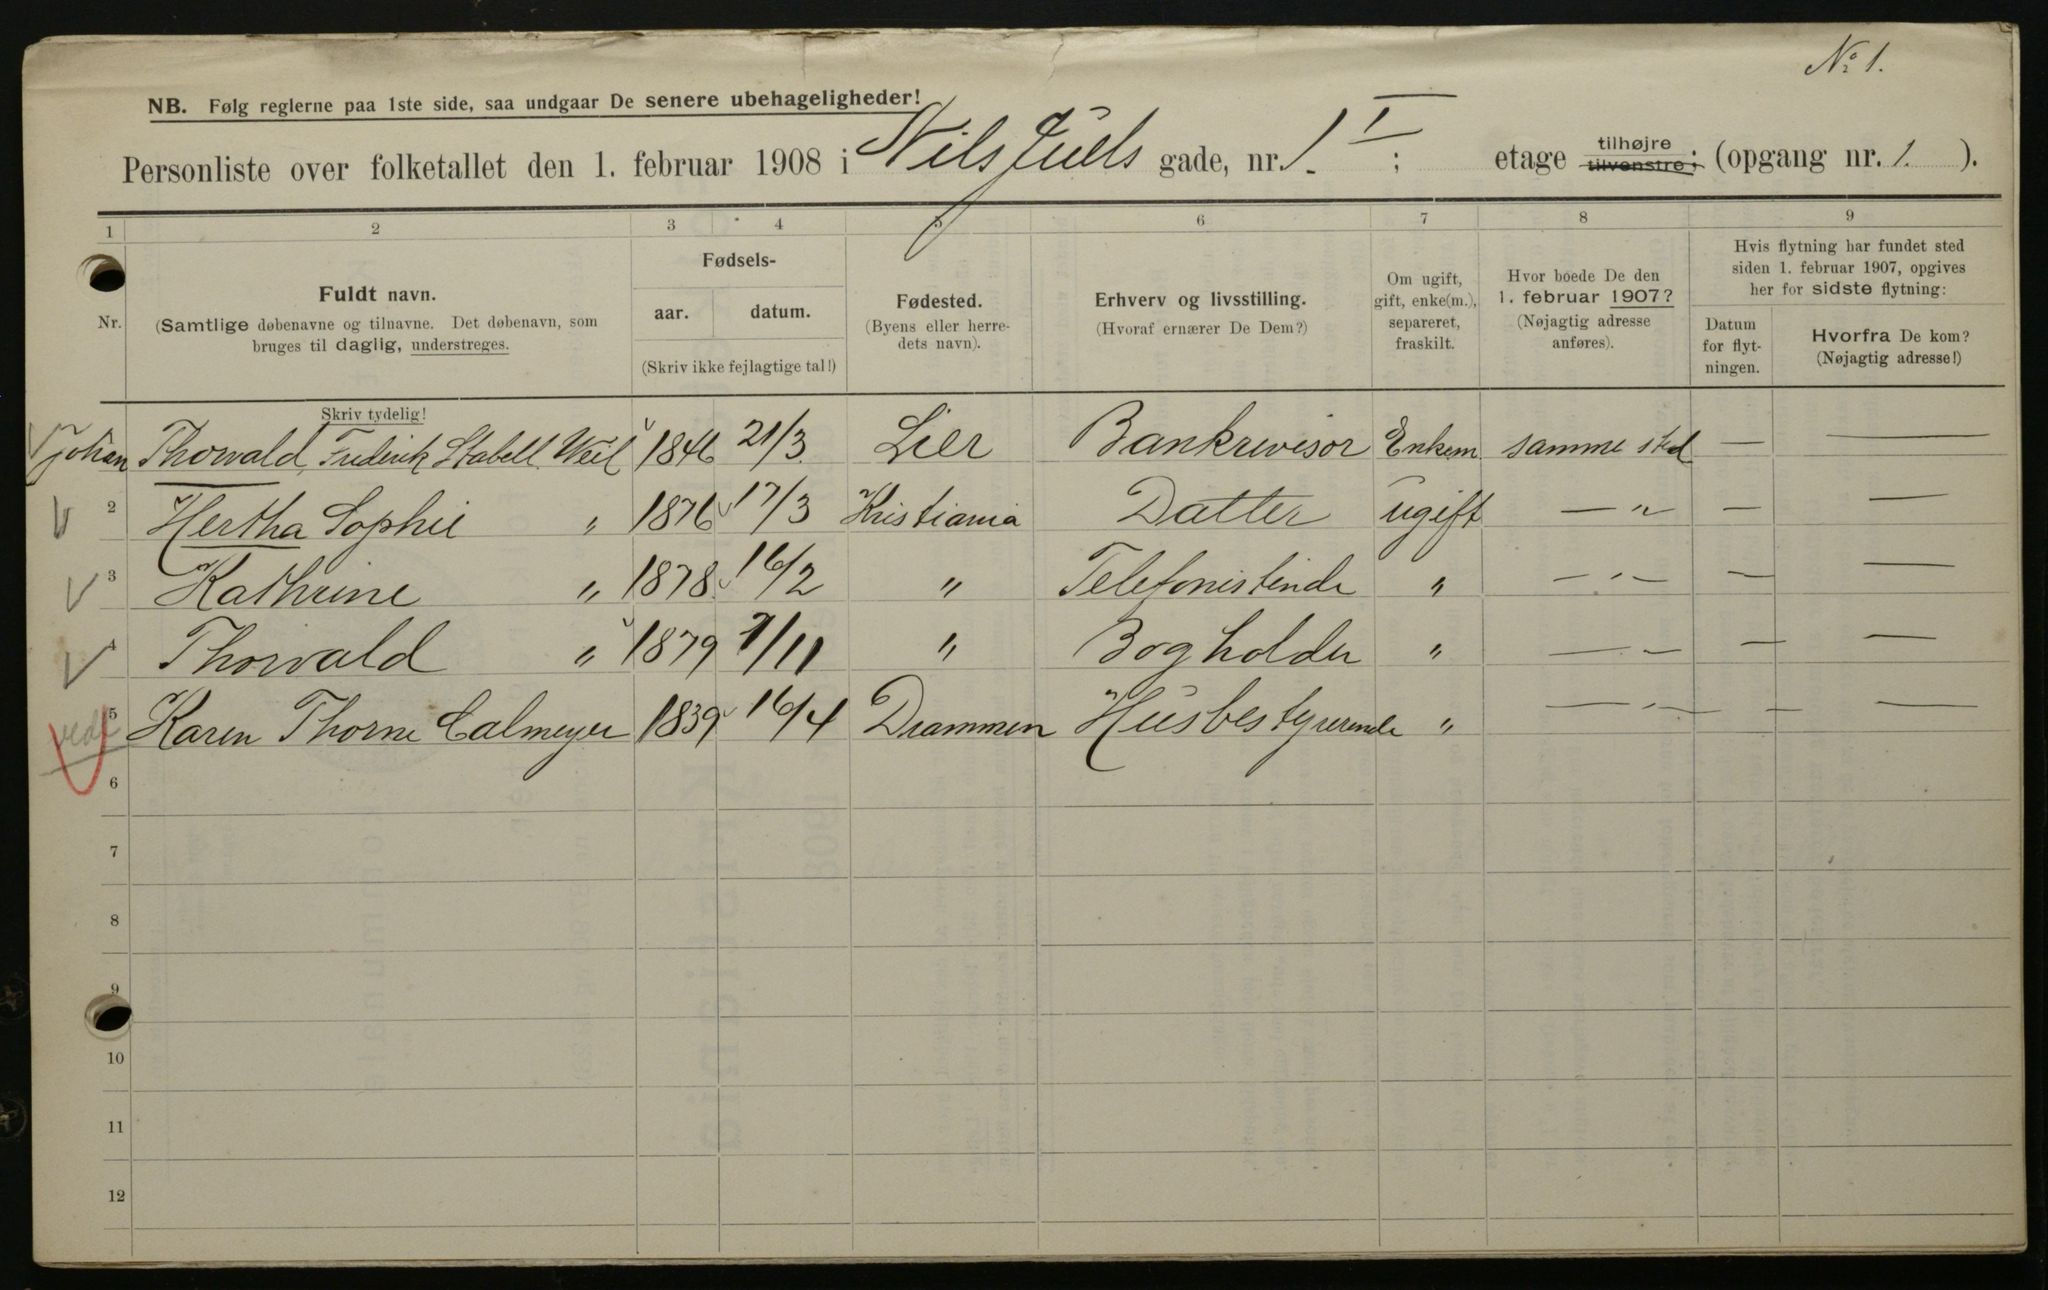 No 1.
NB. Følg reglerne paa 1ste side, saa undgaar De senere ubehageligheder!
Personliste over folketallet den 1. februar 1908 i Nils Juels gade, nr. 1. I ; etage tilhøjre tilvenstre; (opgang nr. 1. ).
1 2 3 4 5 6 7 8 9
Nr.
Fuldt navn.
(Samtlige døbenavne og tilnavne. Det døbenavn, som
bruges til daglig, understreges.
Fødsels-
aar. datum.
(Skriv ikke fejlagtige tal!)
Fødested.
(Byens eller herre-
dets navn).
Erhverv og livsstilling.
(Hvoraf ernærer De Dem?)
Om ugift,
gift, enke(m.),
separeret,
fraskilt.
Hvor boede De den
1. februar 1907?
(Nøjagtig adresse
anføres).
Hvis flytning har fundet sted
siden 1. februar 1907, opgives
her for sidste flytning:
Datum
for flyt-
ningen.
Hvorfra De kom?
(Nøjagtig adresse!)
Skriv tydelig!
Johan Thorvald, Frederik Stabell Weil 1846 21/3 Lier Bankrevisor Enkem. samme sted — —
2 Hertha Sophie " 1876 17/3 Kristiania Datter ugift — " — — —
3 Kathrine " 1878 16/2 " Telefonistinde " — " — — —
4 Thorvald " 1879 7/11 " Bogholder " — " — — —
5 Karen Thorne Calmeyer 1839 16/4 Drammen Husbestyrerinde " — " — — —
6
7
8
9
10
11
12